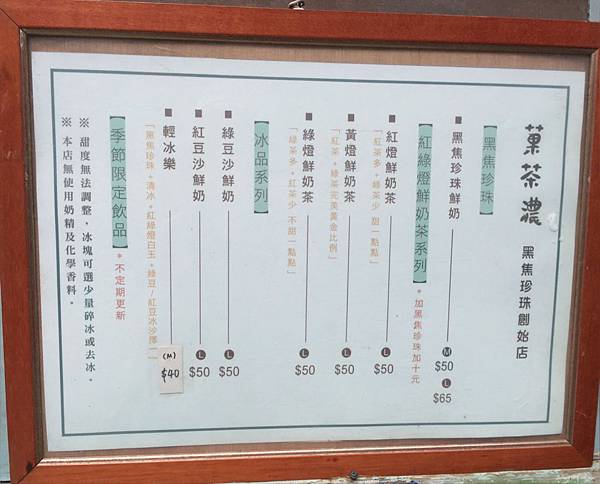 菓茶濃 黑焦珍珠創始店
黑焦珍珠
■ 黑焦珍珠鮮奶 M $50 L $65
紅綠燈鮮奶茶系列 *加黑焦珍珠加十元
■ 紅燈鮮奶茶 L $50
「紅茶多，綠茶少 甜一點點」
■ 黃燈鮮奶茶 L $50
「紅茶、綠茶完美黃金比例」
■ 綠燈鮮奶茶 L $50
「綠茶多，紅茶少 不甜一點點」
冰品系列
■ 綠豆沙鮮奶 L $50
■ 紅豆沙鮮奶 L $50
■ 輕冰樂 (M) $40
「黑焦珍珠+清冰+紅綠燈白玉+綠豆/紅豆冰沙擇一」
季節限定飲品 *不定期更新
※ 甜度無法調整，冰塊可選少量碎冰或去冰。
※ 本店無使用奶精及化學香料。